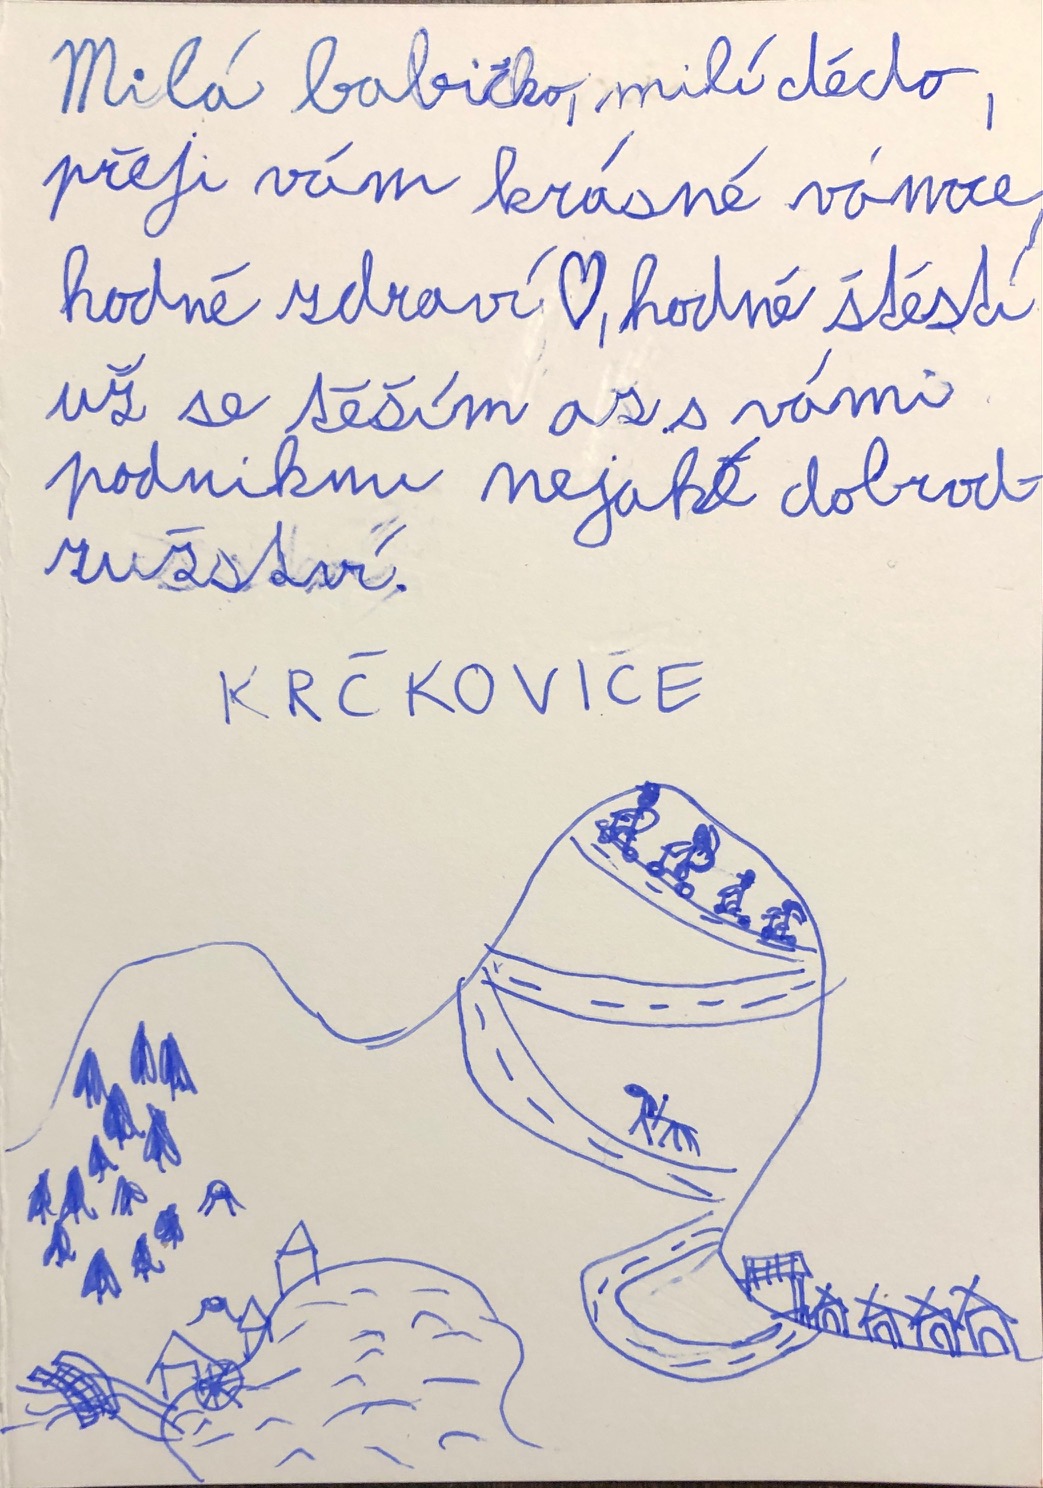 Milá babičko, milí dédo,
přeji vám krásné vánoce,
hodné zdraví♡, hodné štéstí
už se těším až s vámi
podniknu nejaké dobrod-
zužství.
KRČKOVICE